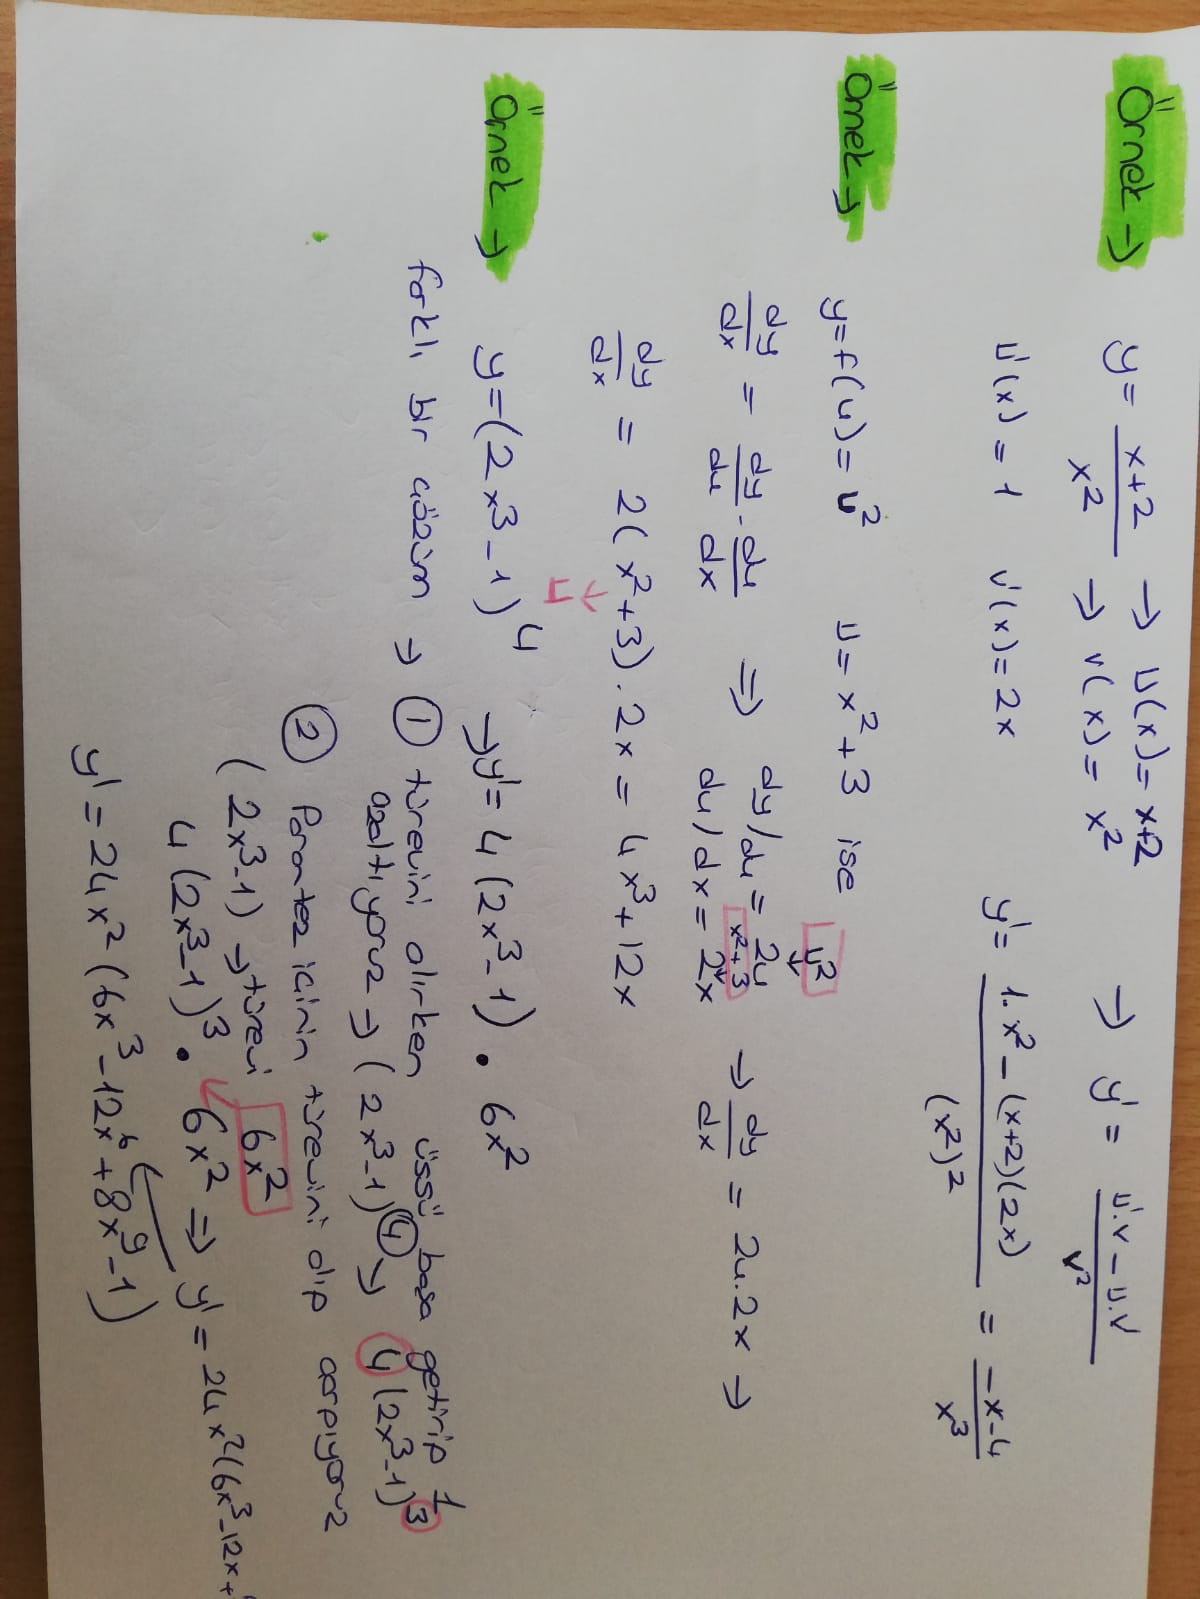 Örnek → y = x+2 / x² → u(x) = x+2 → v(x) = x² → y' = u'.v - u.v' / v²
u'(x) = 1 v'(x) = 2x y' = 1.x² - (x+2)(2x) / (x²)² = -x-4 / x³
Örnek → y = f(u) = u² u = x² + 3 ise u²
dy/dx = dy/du . du/dx ⇒ dy/du = 2u x²+3 du/dx = 2x → dy/dx = 2u.2x →
dy/dx = 2(x²+3).2x = 4x³ + 12x
u
Örnek → y = (2x³-1)⁴ → y' = 4(2x³-1) . 6x²
farklı bir çözüm → ① türevini alırken üssü başa getirip 1
azaltıyoruz → (2x³-1)④ → 4(2x³-1)³
② Parantez içinin türevini alıp çarpıyoruz
(2x³-1) → türevi 6x²
4(2x³-1)³ . 6x² ⇒ y' = 24x²(6x³-12x+
y' = 24x²(6x³-12x⁶+8x⁹-1)